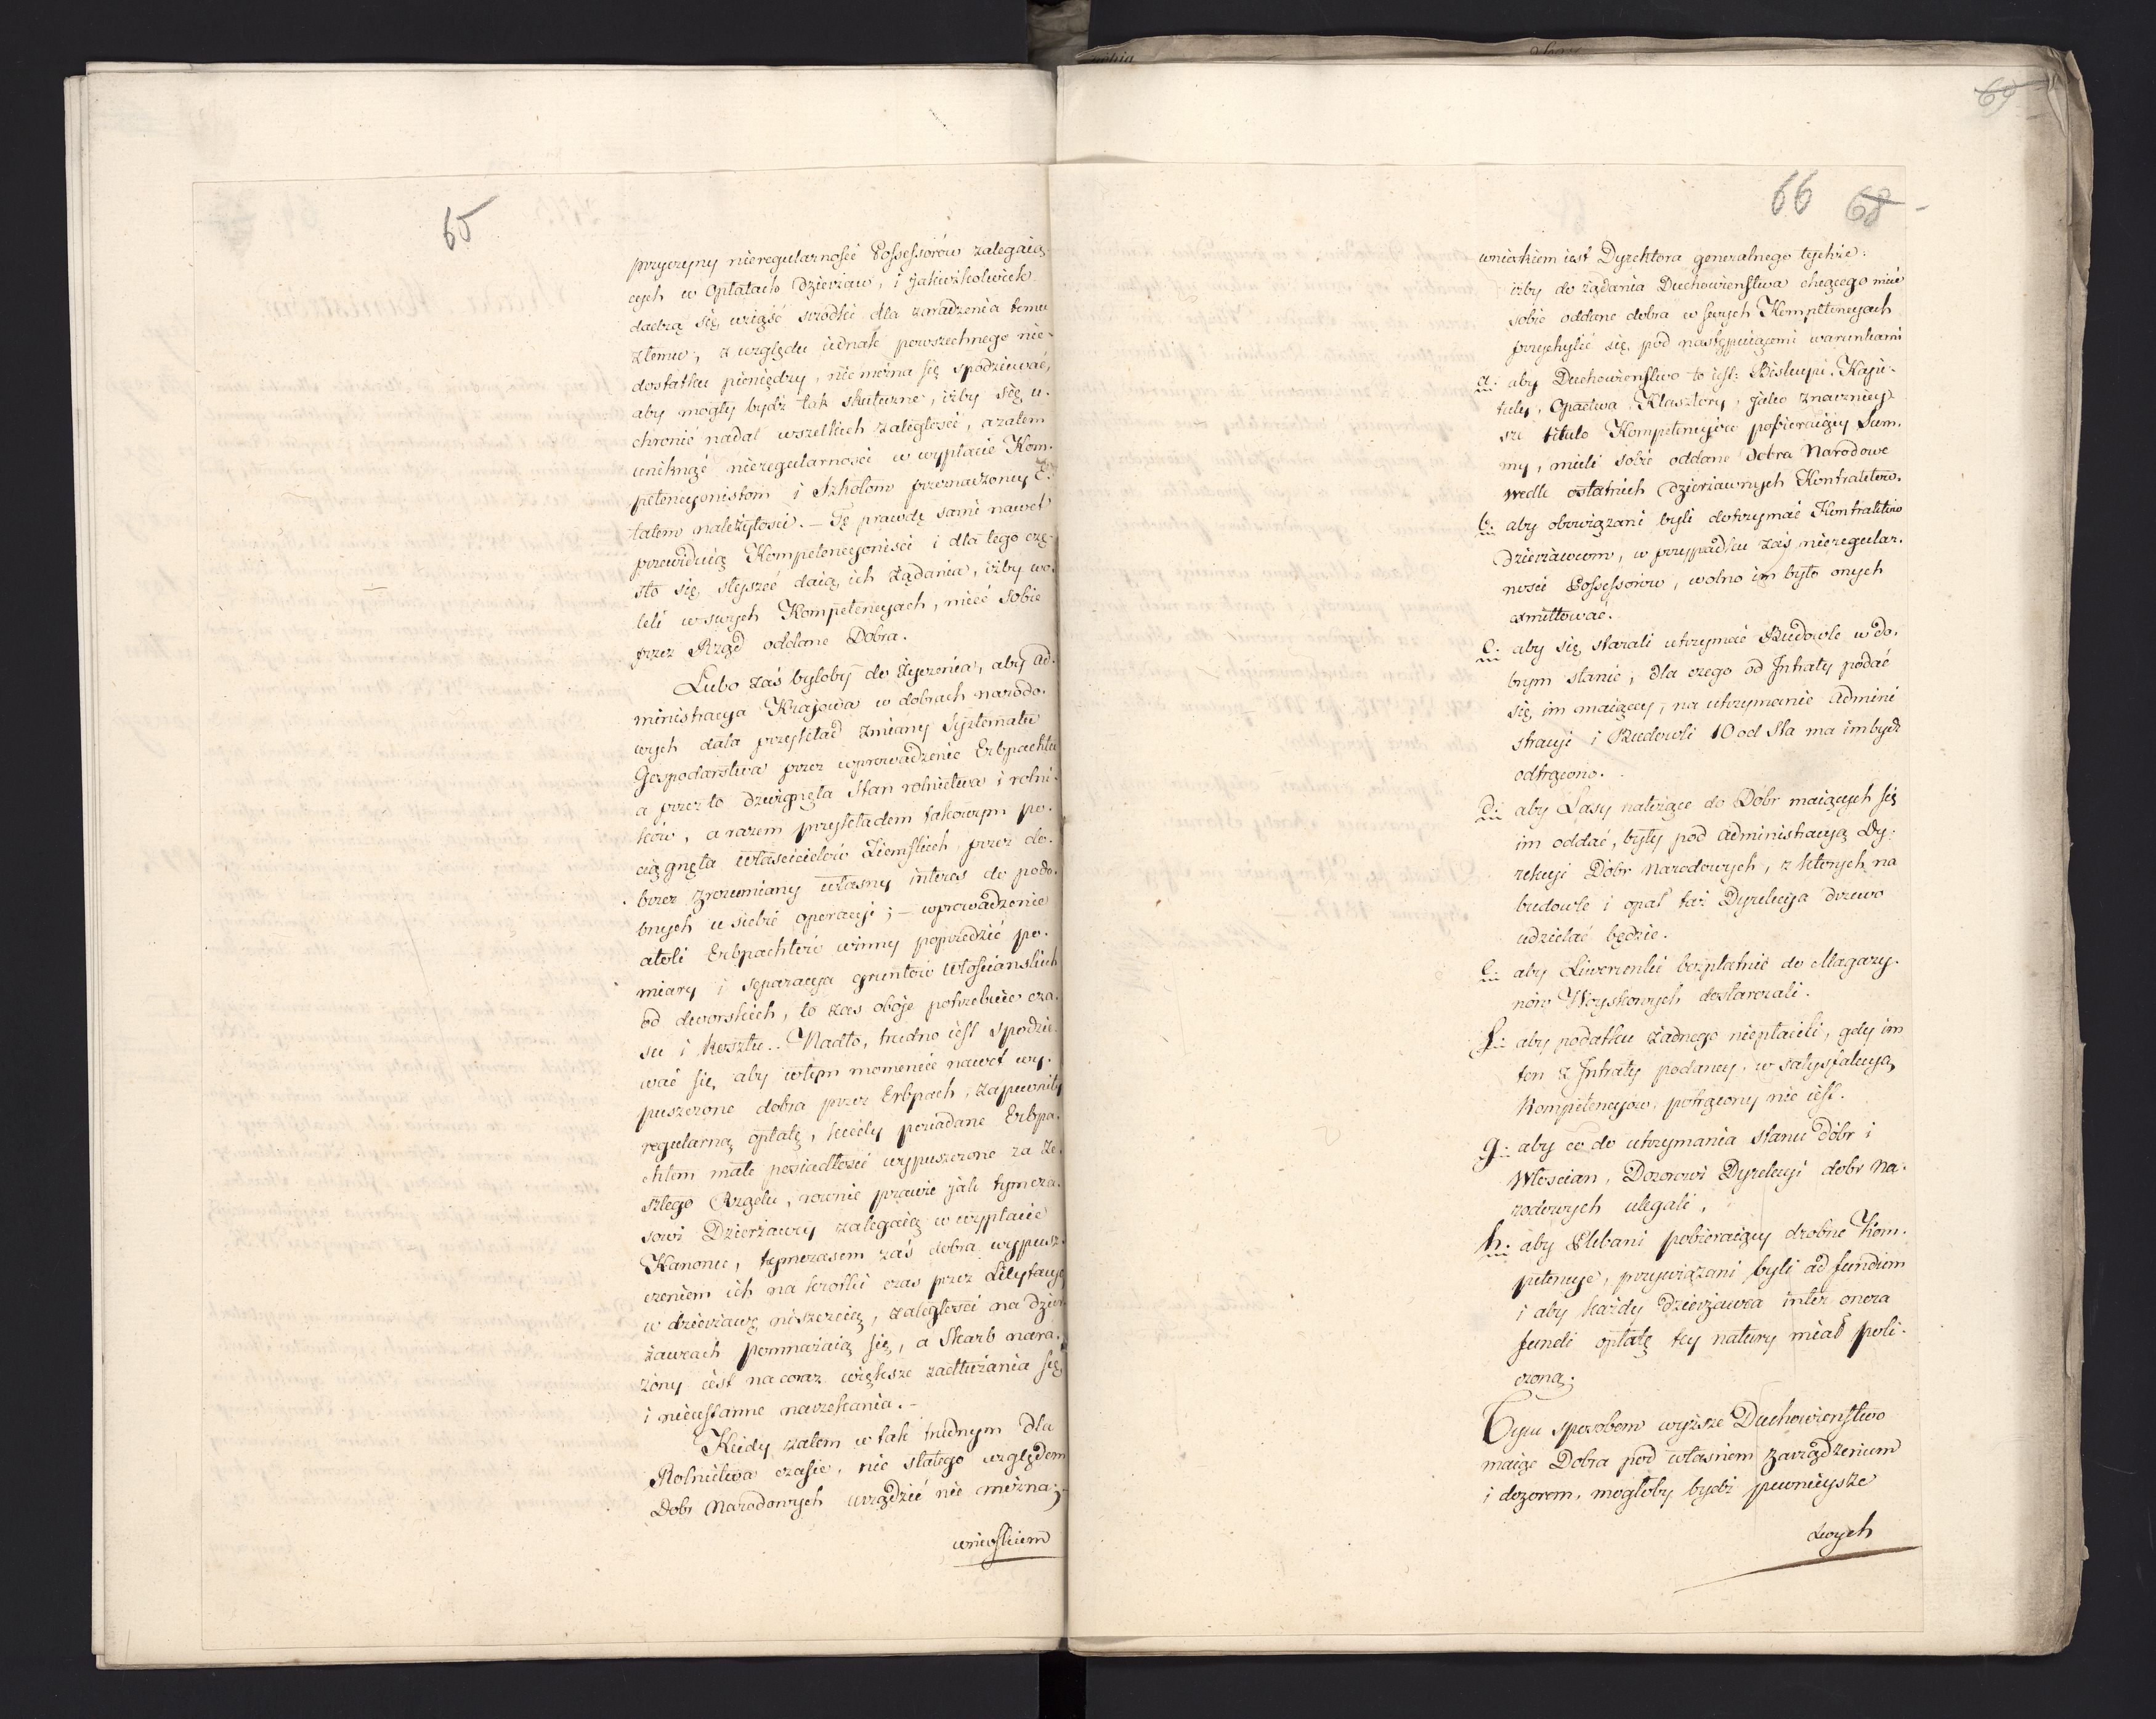 65
przyczyny nieregularnośćé Possessorów zalegaią
cych w Opłatach Dzierzaw, i jakiżkolwiek
dadzą się wziąść srodki dla zaradzenia temu
złemu, z względu iednak powszechnego nie-
dostatku pieniędzy, nie można się spodziewać,
aby mogły bydź tak skuteczne, iżby się u-
chronić nadal wszelkich zaległości, a zatem
uniknąć nieregularności w wypłacie Kom-
petencyonistom i Szkołom przeznaczoney E-
tatem należytości. — Tę prawdę sami nawet
przewiduią Kompetencyoniści i dla tego czę-
sto się słyszeć daią ich Żądania, iżby wo-
leli w swych Kompetencyach, mieć sobie
przez Rząd oddane Dobra.
Lubo zaś byłoby do życzenia, aby Ad-
ministracya Kraiowa w dobrach narodo-
wych dała przykład zmiany Systematu
Gospodarstwa przez wprowadzenie Erbpachtu
a przez to dzwignęła Stan rolnictwa i rolni-
ków, a razem przykładem takowym po-
ciągnęła właścicielow Ziemskich przez do-
brze zrozumiany własny interes do podo-
bnych u siebie operacyi; — wprowadzenie
atoli Erbpachtow winny poprzedzić po-
miary i separacya gruntow Włościanskich
od dworskich, to zas oboje potrzebuie cza-
su i kosztu. Nadto, trudno iest spodzie-
wać się, aby w tym momencie nawet wy-
puszczone dobra przez Erbpach, zapewniły
regularną opłatę, kiedy posiadane Erbpa-
chtem małe posiadłości wypuszczone za ze-
szłego Rządu, rownie prawie jak tymcza-
sowi Dzierżawcy zalegaią w wypłacie
Kanonu, tymczasem zaś dobra wypusz-
czeniem ich na krotki czas przez Licytacyą
w dzierżawę niszczeią, zaległości na dzier-
żawcach pomnażaią się, a Skarb nara-
żony iest na coraz większe zadłużania się
i nieustanne narzekania. —
Kiedy zatem w tak trudnym dla
Rolnictwa czasie, nic stałego względem
Dobr Narodowych urządzić nie można;
wnioskiem
69
66 68
wnioskiem iest Dyrektora generalnego tychże:
iżby do żądania Duchowieństwa chcącego mieć
sobie oddane dobra w swych Kompetencyach
przychylić się pod następuiącemi warunkami
a: aby Duchowieństwo to iest: Biskupi, Kapi-
tuły, Opactwa, Klasztory, jako znacznieỳ-
sze titulo Kompetencyów pobieraiący Sum-
my, mieli sobie oddane Dobra Narodowe
wedle ostatnich Dzierżawnych Kontraktow.
b: aby obowiązani byli dotrzymać Kontraktow
Dzierżawcom, w przypadku zaś nieregular-
ności Possessorów, wolno im było onych
exmittować.
c: aby się starali utrzymać Budowle w do-
brym stanie, dla czego od Intraty podać
się im maiącey, na utrzymanie Admini
stracyi i Budowli 10 od Sta ma im bydź
odtrącono.
d: aby Lasy należące do Dobr maiących się
im oddać, były pod administracyą Dy-
rekcyi Dobr Narodowych, z ktorych na
budowle i opał też Dyrekcya drzewo
udzielać będzie.
e: aby Liwerunki bezpłatnie do Magazy-
nów Woyskowych dostarczali.
f: aby podatku żadnego niepłacili, gdy im
ten z Intraty podaney, w satysfakcyą
Kompetencyow, potrącony nie iest.
g: aby co do utrzymania stanu Dóbr i
Włościan, Dozorowi Dyrekcyi dobr Na-
rodowych ulegali,
h: aby Plebani pobieraiący drobne Kom-
petencye, przywiązani byli ad fundum
i aby każdy Dzierżawca inter onera
fundi opłatę tey natury miał poli-
czoną.
Tym sposobem wyższe Duchowieństwo
maiąc Dobra pod własnem Zarządzeniem
i dozorem, mogłoby bydź pewnieysze
swych